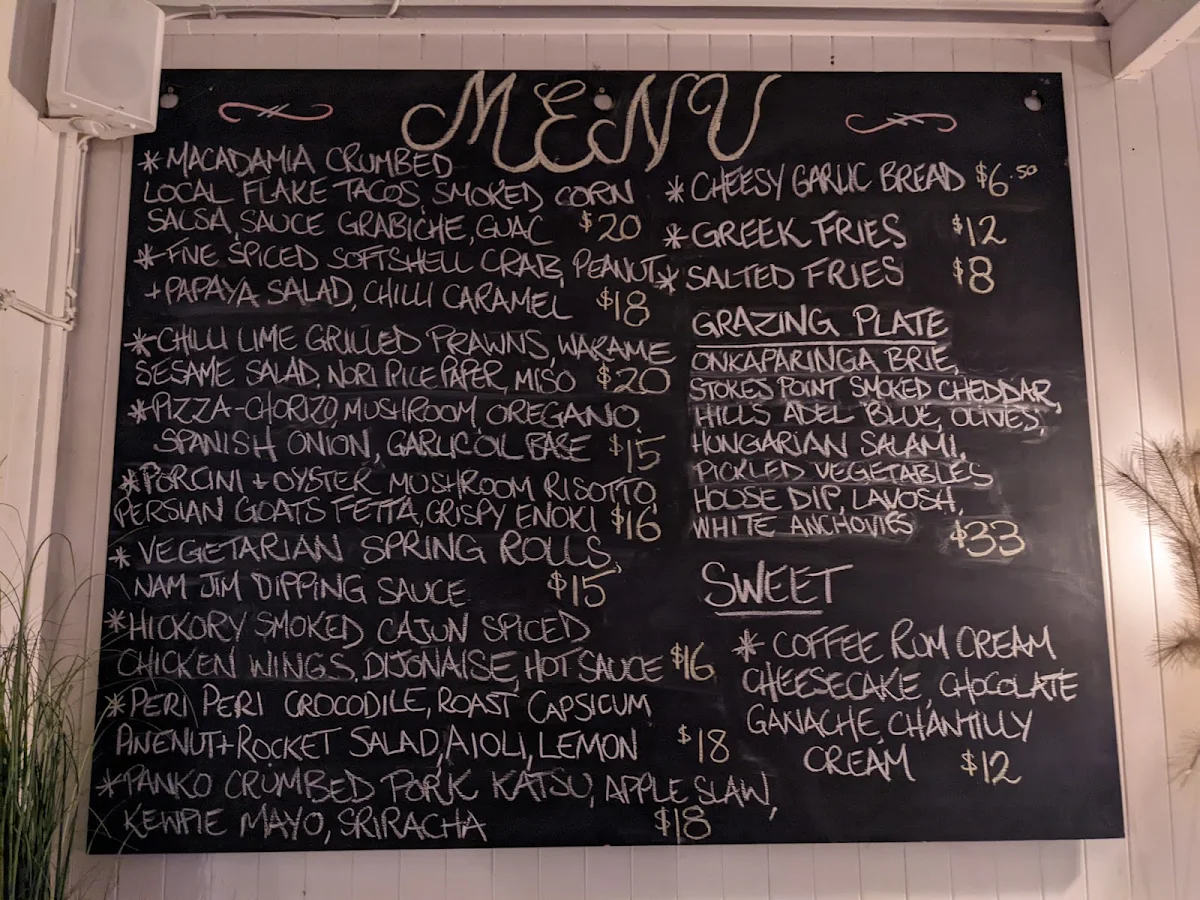 MENU
* MACADAMIA CRUMBED
LOCAL FLAKE TACOS, SMOKED CORN
SALSA, SAUCE GRABICHE, GUAC $20
* FIVE SPICED SOFTSHELL CRAB, PEANUT
+ PAPAYA SALAD, CHILLI CARAMEL $18
* CHILLI LIME GRILLED PRAWNS, WAKAME
SESAME SALAD, NORI RICE PAPER, MISO $20
* PIZZA - CHORIZO, MUSHROOM, OREGANO,
SPANISH ONION, GARLIC OIL BASE $15
* PORCINI + OYSTER MUSHROOM RISOTTO,
PERSIAN GOATS FETTA, CRISPY ENOKI $16
* VEGETARIAN SPRING ROLLS,
NAM JIM DIPPING SAUCE $15
* HICKORY SMOKED CAJUN SPICED
CHICKEN WINGS, DIJONAISE, HOT SAUCE $16
* PERI PERI CROCODILE, ROAST CAPSICUM
PINENUT + ROCKET SALAD, AIOLI, LEMON $18
* PANKO CRUMBED PORK KATSU, APPLE SLAW,
KEWPIE MAYO, SRIRACHA $18
* CHEESY GARLIC BREAD $6.50
* GREEK FRIES $12
* SALTED FRIES $8
GRAZING PLATE
ONKAPARINGA BRIE,
STOKES POINT SMOKED CHEDDAR,
HILLS ADEL BLUE, OLIVES,
HUNGARIAN SALAMI,
PICKLED VEGETABLES
HOUSE DIP, LAVOSH,
WHITE ANCHOVIES $33
SWEET
* COFFEE RUM CREAM
CHEESECAKE, CHOCOLATE
GANACHE, CHANTILLY
CREAM $12